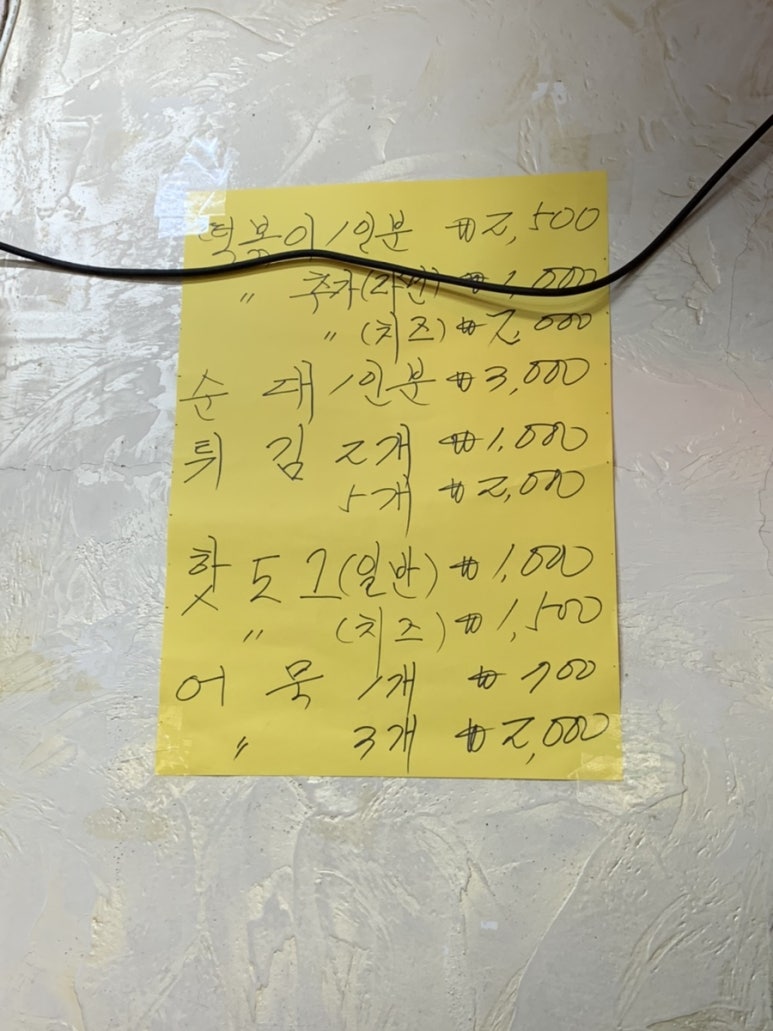 떡볶이 1인분 ₩2,500
〃 추가(라면) ₩1,000
〃 (치즈) ₩2,000
순 대 1인분 ₩3,000
튀 김 2개 ₩1,000
5개 ₩2,000
핫 도 그(일반) ₩1,000
〃 (치즈) ₩1,500
어 묵 1개 ₩700
〃 3개 ₩2,000